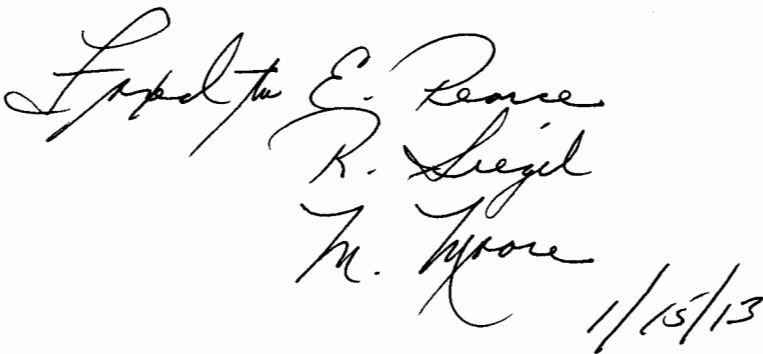 Faxed to E. Pearce
R. Siegel
M. Moore
1/15/13